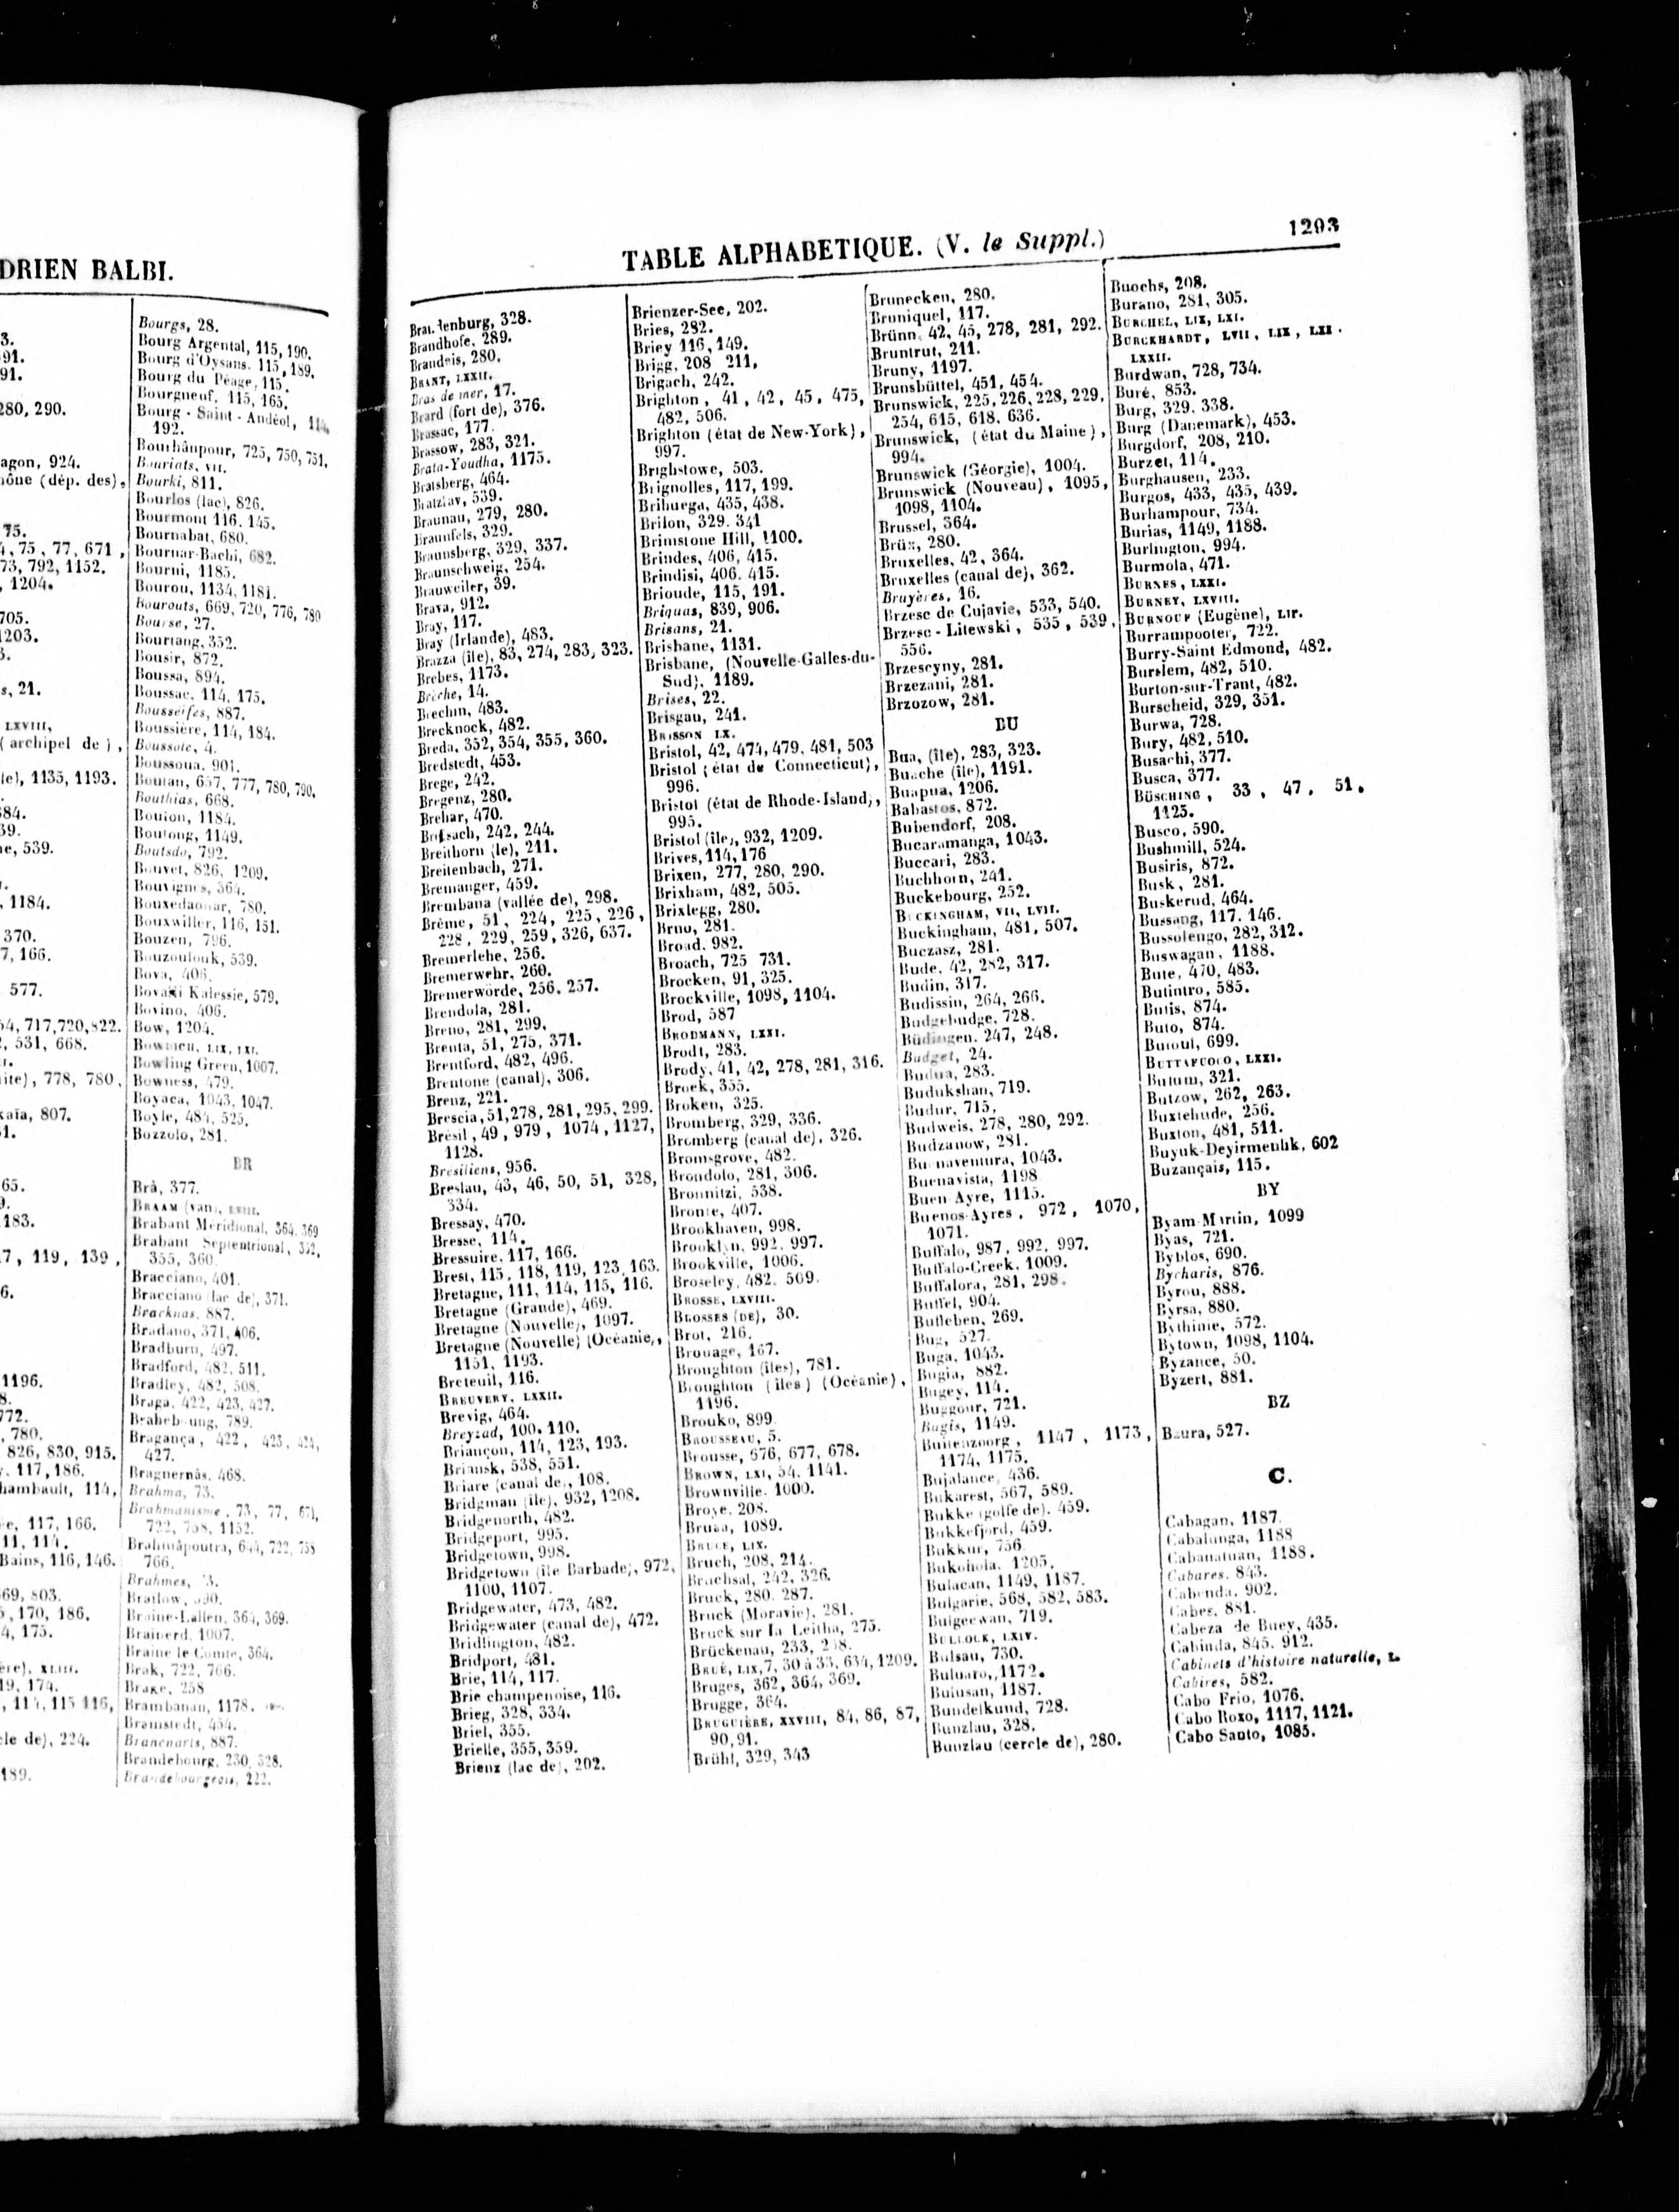 DRIEN BALBI.
3.
91.
91.
280, 290.
agon, 924.
ône (dép. des),
75.
4, 75, 77, 671,
73, 792, 1152.
, 1204.
705.
1203.
s, 21.
LXVIII,
(archipel de),
le), 1135, 1193.
384.
39.
ne, 539.
, 1184.
370.
7, 166.
577.
54, 717, 720, 822.
2, 531, 668.
ite), 778, 780,
kaïa, 807.
65.
183.
7, 119, 139,
6.
1196.
8.
772.
, 780.
826, 830, 915.
, 117, 186.
hambault, 114,
re, 117, 166.
11, 114.
Bains, 116, 146.
69, 803.
5, 170, 186.
4, 175.
ère), XLIII.
19, 174.
, 114, 115 116,
cle de), 224.
189.
Bourgs, 28.
Bourg Argental, 115, 190.
Bourg d'Oysans. 115, 189.
Bourg du Péage, 115.
Bourgneuf, 115, 165.
Bourg-Saint-Andéol, 114,
192.
Bourhânpour, 725, 750, 751.
Bouriats, VII.
Bourki, 811.
Bourlos (lac), 826.
Bourmont 116, 145.
Bournabat, 680.
Bournar-Bachi, 682.
Bourni, 1185.
Bourou, 1134, 1181.
Bourouts, 669, 720, 776, 780
Bourse, 27.
Bourtang, 352.
Bousir, 872.
Boussa, 894.
Boussac, 114, 175.
Bousseifes, 887.
Boussière, 114, 184.
Boussole, 4.
Boussoua, 901.
Boutan, 657, 777, 780, 790.
Bouthias, 668.
Bouton, 1184.
Boutong, 1149.
Boutsdo, 792.
Bouvet, 826, 1209.
Bouvignes, 364.
Bouxedaouar, 780.
Bouxwiller, 116, 151.
Bouzen, 796.
Bouzoulouk, 539.
Bova, 406.
Bovaki Kalessie, 579.
Bovino, 406.
Bow, 1204.
Bowdich, LIX, LXI.
Bowling Green, 1007.
Bowness, 479.
Boyaca, 1043, 1047.
Boyle, 484, 525.
Bozzolo, 281.
BR
Brà, 377.
BRAAM (van), LXIII.
Brabant Meridional, 364, 369
Brabant Septentrional, 352,
355, 360
Bracciano, 401.
Bracciano (lac de), 371.
Bracknas, 887.
Bradano, 371, 406.
Bradburn, 497.
Bradford, 482, 511.
Bradley, 482, 508.
Braga, 422, 423, 427.
789.
Bragança, 422, 423, 424,
427.
Bragnernâs, 468.
Brahma, 73.
Brahmanisme, 73, 77, 671,
722, 758, 1152.
Brahmâpoutra, 644, 722, 758
766.
Brahmes, 73.
Brailow, 590.
Braine-Lallen, 364, 369.
Brainerd, 1007.
Braine le Comte, 364.
Brak, 722, 766.
Brake, 258
Brambanan, 1178.
Bramstedt, 454.
Brancnarts, 887.
Brandebourg, 230, 328.
Brandebourgeois, 222.
TABLE ALPHABETIQUE. (V. le Suppl.)
1293
Brandenburg, 328.
Brandhofe, 289.
Brandeis, 280.
BRANT, LXXII.
Bras de mer, 17.
Brard (fort de), 376.
Brassac, 177.
Brassow, 283, 321.
Brata-Youdha, 1175.
Bratsberg, 464.
Bratzlav, 539.
Braunau, 279, 280.
Braunfels, 329.
Braunsberg, 329, 337.
Braunschweig, 254.
Brauweiler, 39.
Brava, 912.
Bray, 117.
Bray (Irlande), 483.
Brazza (île), 83, 274, 283, 323.
Brebes, 1173.
Brèche, 14.
Brechin, 483.
Brecknock, 482.
Breda, 352, 354, 355, 360.
Bredstedt, 453.
Brege, 242.
Bregenz, 280.
Brehar, 470.
Breisach, 242, 244.
Breithorn (le), 211.
Breitenbach, 271.
Bremanger, 459.
Brembana (vallée de), 298.
Brême, 51, 224, 225, 226,
228, 229, 259, 326, 637.
Bremerlehe, 256.
Bremerwehr, 260.
Bremerwörde, 256, 257.
Brendola, 281.
Breno, 281, 299.
Brenta, 51, 275, 371.
Brentford, 482, 496.
Brentone (canal), 306.
Brenz, 221.
Brescia, 51, 278, 281, 295, 299.
Brésil, 49, 979, 1074, 1127,
1128.
Bresiliens, 956.
Breslau, 43, 46, 50, 51, 328,
334.
Bressay, 470.
Bresse, 114.
Bressuire, 117, 166.
Brest, 115, 118, 119, 123, 163.
Bretagne, 111, 114, 115, 116.
Bretagne (Grande), 469.
Bretagne (Nouvelle), 1097.
Bretagne (Nouvelle) (Océanie),
1151, 1193.
Breteuil, 116.
BREUVERY, LXXII.
Brevig, 464.
Breyzad, 100, 110.
Briançon, 114, 123, 193.
Briansk, 538, 551.
Briare (canal de), 108.
Bridgman (île), 932, 1208.
Bridgenorth, 482.
Bridgeport, 995.
Bridgetown, 998.
Bridgetown (île Barbade), 972,
1100, 1107.
Bridgewater, 473, 482.
Bridgewater (canal de), 472.
Bridlington, 482.
Bridport, 481.
Brie, 114, 117.
Brie champenoise, 116.
Brieg, 328, 334.
Briel, 355.
Brielle, 355, 359.
Brienz (lac de), 202.
Brienzer-See, 202.
Bries, 282.
Briey 116, 149.
Brigg, 208 211,
Brigach, 242.
Brighton, 41, 42, 45, 475,
482, 506.
Brighton (état de New-York),
997.
Brighstowe, 503.
Brignolles, 117, 199.
Brihuega, 435, 438.
Brilon, 329. 341
Brimstone Hill, 1100.
Brindes, 406, 415.
Brindisi, 406. 415.
Brioude, 115, 191.
Briquas, 839, 906.
Brisans, 21.
Brisbane, 1131.
Brisbane, (Nouvelle-Galles-du-
Sud), 1189.
Brises, 22.
Brisgau, 241.
BRISSON LX.
Bristol, 42, 474, 479, 481, 503
Bristol (état de Connecticut),
996.
Bristol (état de Rhode-Island),
995.
Bristol (île), 932, 1209.
Brives, 114, 176
Brixen, 277, 280, 290.
Brixham, 482, 505.
Brixlegg, 280.
Brno, 281.
Broad, 982.
Broach, 725 731.
Brocken, 91, 325.
Brockville, 1098, 1104.
Brod, 587
BRODMANN, LXXI.
Brodt, 283.
Brody, 41, 42, 278, 281, 316.
Broek, 355.
Broken, 325.
Bromberg, 329, 336.
Bromberg (canal de), 326.
Bromsgrove, 482.
Brondolo, 281, 306.
Bronnitzi, 538.
Bronte, 407.
Brookhaven, 998.
Brooklyn, 992, 997.
Brookville, 1006.
Broseley, 482, 509.
BROSSE, LXVIII.
BROSSES (DE), 30.
Brot, 216.
Brouage, 167.
Broughton (îles), 781.
Broughton (îles) (Océanie),
1196.
Brouko, 899
BROUSSEAU, 5.
Brousse, 676, 677, 678.
BROWN, LXI, 54, 1141.
Brownville. 1000.
Broye, 208.
Brusa, 1089.
BRUCE, LIX.
Bruch, 208, 214.
Bruchsal, 242, 326.
Bruck, 280, 287.
Bruck (Moravie), 281.
Bruck sur la Leitha, 275.
Brückenau, 233, 238.
BRUÉ, LIX, 7, 30 à 33, 634, 1209.
Bruges, 362, 364, 369.
Brugge, 364.
BRUGUIÈRE, XXVIII, 84, 86, 87,
90, 91.
Brühl, 329, 343
Brunecken, 280.
Bruniquel, 117.
Brünn, 42, 45, 278, 281, 292.
Bruntrut, 211.
Bruny, 1197.
Brunsbüttel, 451, 454.
Brunswick, 225, 226, 228, 229,
254, 615, 618, 636.
Brunswick, (état du Maine),
994.
Brunswick (Géorgie), 1004.
Brunswick (Nouveau), 1095,
1098, 1104.
Brussel, 364.
Brüx, 280.
Bruxelles, 42, 364.
Bruxelles (canal de), 362.
Bruyères, 16.
Brzesc de Cujavie, 533, 540.
Brzesc-Litewski, 535, 539,
556.
Brzescyny, 281.
Brzezani, 281.
Brzozow, 281.
BU
Bua, (île), 283, 323.
Buache (île), 1191.
Buapua, 1206.
Bubastos, 872.
Bubendorf, 208.
Bucaramanga, 1043.
Buccari, 283.
Buchhorn, 241.
Buckebourg, 252.
BUCKINGHAM, VII, LVII.
Buckingham, 481, 507.
Buczasz, 281.
Bude, 42, 282, 317.
Budin, 317.
Budissin, 264, 266.
Budgebudge, 728.
Büdingen, 247, 248.
Budget, 24.
Budua, 283.
Budukshan, 719.
Budur, 715,
Budweis, 278, 280, 292.
Budzanow, 281.
Buenaventura, 1043.
Buenavista, 1198
Buen-Ayre, 1115.
Buenos-Ayres, 972, 1070,
1071.
Buffalo, 987, 992, 997.
Buffalo-Creek, 1009.
Buffalora, 281, 298.
Buffel, 904.
Bufleben, 269.
Bug, 527.
Buga, 1043.
Bugia, 882.
Bugey, 114.
Buggour, 721.
Bugis, 1149.
Buitenzoorg, 1147, 1173,
1174, 1175.
Bujalance, 436.
Bukarest, 567, 589.
Bukke (golfe de), 459.
Bukkefjord, 459.
Bukkur, 756
Bukohola, 1205.
Bulacan, 1149, 1187.
Bulgarie, 568, 582, 583.
Bulgeewan, 719.
BULLOCK, LXIV.
Bulsau, 730.
Buluato, 1172.
Bulusan, 1187.
Bundelkund, 728.
Bunzlau, 328.
Bunzlau (cercle de), 280.
Buochs, 208.
Burano, 281, 305.
BURCHEL, LIX, LXI.
BURCKHARDT, LVII, LIX, LXI.
LXXII.
Burdwan, 728, 734.
Buré, 853.
Burg, 329, 338.
Burg (Danemark), 453.
Burgdorf, 208, 210.
Burzet, 114.
Burghausen, 233.
Burgos, 433, 435, 439.
Burhampour, 734.
Burias, 1149, 1188.
Burlington, 994.
Burmola, 471.
BURNES, LXXI.
BURNEY, LXVIII.
BURNOUF (Eugène), LIV.
Burrampooter, 722.
Burry-Saint Edmond, 482.
Burslem, 482, 510.
Burton-sur-Trant, 482.
Burscheid, 329, 351.
Burwa, 728.
Bury, 482, 510.
Busachi, 377.
Busca, 377.
BÜSCHING, 33, 47, 51,
1125.
Busco, 590.
Bushmill, 524.
Busiris, 872.
Busk, 281.
Buskerud, 464.
Bussang, 117, 146.
Bussolengo, 282, 312.
Buswagan, 1188.
Bute, 470, 483.
Butintro, 585.
Butis, 874.
Buto, 874.
Butoul, 699.
BUTTAFCOCO, LXXI.
Butum, 321.
Butzow, 262, 263.
Buxtehude, 256.
Buxton, 481, 511.
Buyuk-Deyirmenlik, 602
Buzançais, 115.
BY
Byam-Martin, 1099
Byas, 721.
Byblos, 690.
Bycharis, 876.
Byrou, 888.
Byrsa, 880.
Bythinie, 572.
Bytown, 1098, 1104.
Byzance, 50.
Byzert, 881.
BZ
Bzura, 527.
C.
Cabagan, 1187.
Cabalunga, 1188
Cabanatuan, 1188.
Cabares, 843.
Cabenda, 902.
Cabes, 881.
Cabeza de Buey, 435.
Cabinda, 845, 912.
Cabinets d'histoire naturelle, L.
Cabires, 582.
Cabo Frio, 1076.
Cabo Roxo, 1117, 1121.
Cabo Santo, 1085.